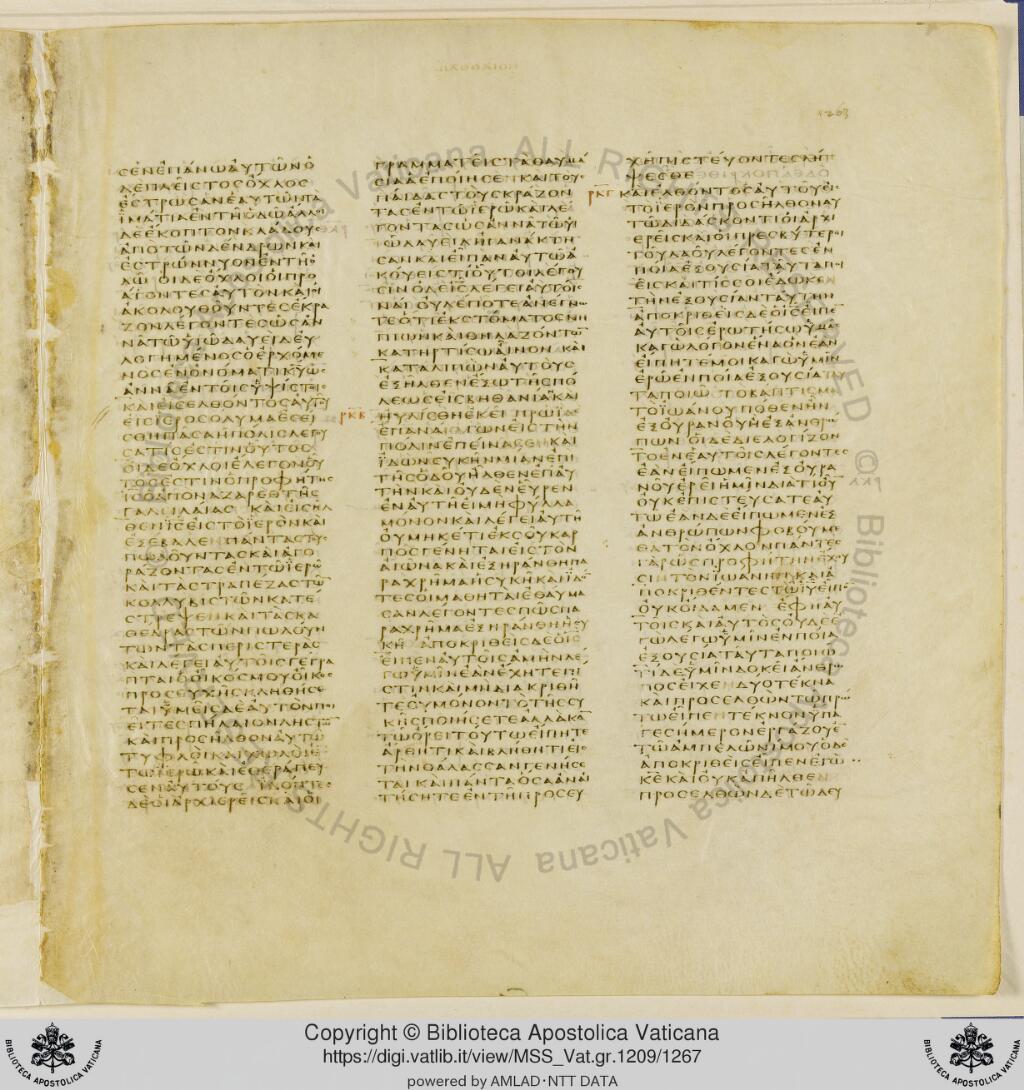 ΣΕΝΕΠΑΝΩΑΥΤΩΝΟ
ΔΕΠΛΕΙΣΤΟΣΟΧΛΟΣ
ΕΣΤΡΩΣΑΝΕΑΥΤΩΝΤΑ
ΙΜΑΤΙΑΕΝΤΗΟΔΩΑΛΛΟΙ
ΔΕΕΚΟΠΤΟΝΚΛΑΔΟΥΣ
ΑΠΟΤΩΝΔΕΝΔΡΩΝΚΑΙ
ΕΣΤΡΩΝΝΥΟΝΕΝΤΗΟ
ΔΩ ΟΙΔΕΟΧΛΟΙΟΙΠΡΟ
ΑΓΟΝΤΕΣΑΥΤΟΝΚΑΙΟΙ
ΑΚΟΛΟΥΘΟΥΝΤΕΣΕΚΡΑ
ΖΟΝΛΕΓΟΝΤΕΣΩΣΑΝ
ΝΑΤΩΥΙΩΔΑΥΕΙΔΕΥ
ΛΟΓΗΜΕΝΟΣΟΕΡΧΟΜΕ
ΝΟΣΕΝΟΝΟΜΑΤΙΚΥΩΣ
ΑΝΝΑΕΝΤΟΙΣΥΨΙΣΤΟΙΣ
ΚΑΙΕΙΣΕΛΘΟΝΤΟΣΑΥΤΟΥ
ΕΙΣΙΕΡΟΣΟΛΥΜΑΕΣΕΙ
ΣΘΗΠΑΣΑΗΠΟΛΙΣΛΕΓΟΥ
ΣΑΤΙΣΕΣΤΙΝΟΥΤΟΣ
ΟΙΔΕΟΧΛΟΙΕΛΕΓΟΝΟΥ
ΤΟΣΕΣΤΙΝΟΠΡΟΦΗΤΗΣ
ΙΣΟΑΠΟΝΑΖΑΡΕΘΤΗΣ
ΓΑΛΕΙΛΑΙΑΣ ΚΑΙΕΙΣΗΛ
ΘΕΝΙΣΕΙΣΤΟΙΕΡΟΝΚΑΙ
ΕΞΕΒΑΛΕΝΠΑΝΤΑΣΤΟΥΣ
ΠΩΛΟΥΝΤΑΣΚΑΙΑΓΟ
ΡΑΖΟΝΤΑΣΕΝΤΩΙΕΡΩ
ΚΑΙΤΑΣΤΡΑΠΕΖΑΣΤΩ
ΚΟΛΛΥΒΙΣΤΩΝΚΑΤΕ
ΣΤΡΕΨΕΝΚΑΙΤΑΣΚΑ
ΘΕΔΡΑΣΤΩΝΠΩΛΟΥΝ
ΤΩΝΤΑΣΠΕΡΙΣΤΕΡΑΣ
ΚΑΙΛΕΓΕΙΑΥΤΟΙΣΓΕΓΡΑ
ΠΤΑΙΟΟΙΚΟΣΜΟΥΟΙΚΟΣ
ΠΡΟΣΕΥΧΗΣΚΛΗΘΗΣΕ
ΤΑΙΥΜΕΙΣΔΕΑΥΤΟΝΠΟΙ
ΕΙΤΕΣΠΗΛΑΙΟΝΛΗΣΤΩ
ΚΑΙΠΡΟΣΗΛΘΟΝΑΥΤΩ
ΤΥΦΛΟΙΚΑΙΧΩΛΟΙΕΝ
ΤΩΙΕΡΩΚΑΙΕΘΕΡΑΠΕΥ
ΣΕΝΑΥΤΟΥΣ ΙΔΟΝΤΕΣ
ΔΕΟΙΑΡΧΙΕΡΕΙΣΚΑΙΟΙ
ΓΡΑΜΜΑΤΕΙΣΤΑΘΑΥΜΑ
ΣΙΑΑΕΠΟΙΗΣΕΝΚΑΙΤΟΥΣ
ΠΑΙΔΑΣΤΟΥΣΚΡΑΖΟΝ
ΤΑΣΕΝΤΩΙΕΡΩΚΑΙΛΕ
ΓΟΝΤΑΣΩΣΑΝΝΑΤΩΥΙ
ΩΔΑΥΕΙΔΗΓΑΝΑΚΤΗ
ΣΑΝΚΑΙΕΙΠΑΝΑΥΤΩΑ
ΚΟΥΕΙΣΤΙΟΥΤΟΙΛΕΓΟΥ
ΣΙΝΟΔΕΙΣΛΕΓΕΙΑΥΤΟΙΣ
ΝΑΙΟΥΔΕΠΟΤΕΑΝΕΓΝΩ
ΤΕΟΤΙΕΚΣΤΟΜΑΤΟΣΝΗ
ΠΙΩΝΚΑΙΘΗΛΑΖΟΝΤΩ
ΚΑΤΗΡΤΙΣΩΑΙΝΟΝ ΚΑΙ
ΚΑΤΑΛΙΠΩΝΑΥΤΟΥΣ
ΕΞΗΛΘΕΝΕΞΩΤΗΣΠΟ
ΛΕΩΣΕΙΣΒΗΘΑΝΙΑΚΑΙ
ΡΚΒ ΗΥΛΙΣΘΗΕΚΕΙ ΠΡΩΙΔΕ
ΕΠΑΝΑΓΑΓΩΝΕΙΣΤΗΝ
ΠΟΛΙΝΕΠΕΙΝΑΣΕΝ ΚΑΙ
ΙΔΩΝΣΥΚΗΝΜΙΑΝΕΠΙ
ΤΗΣΟΔΟΥΗΛΘΕΝΕΠΑΥ
ΤΗΝΚΑΙΟΥΔΕΝΕΥΡΕΝ
ΕΝΑΥΤΗΕΙΜΗΦΥΛΛΑ
ΜΟΝΟΝΚΑΙΛΕΓΕΙΑΥΤΗ
ΟΥΜΗΚΕΤΙΕΚΣΟΥΚΑΡ
ΠΟΣΓΕΝΗΤΑΙΕΙΣΤΟΝ
ΑΙΩΝΑΚΑΙΕΞΗΡΑΝΘΗΠΑ
ΡΑΧΡΗΜΑΗΣΥΚΗΚΑΙΙΔΟ
ΤΕΣΟΙΜΑΘΗΤΑΙΕΘΑΥΜΑ
ΣΑΝΛΕΓΟΝΤΕΣΠΩΣΠΑ
ΡΑΧΡΗΜΑΕΞΗΡΑΝΘΗΗΣΥ
ΚΗ ΑΠΟΚΡΙΘΕΙΣΔΕΟΙΣ
ΕΙΠΕΝΑΥΤΟΙΣΑΜΗΝΛΕ
ΓΩΥΜΙΝΕΑΝΕΧΗΤΕΠΙ
ΣΤΙΝΚΑΙΜΗΔΙΑΚΡΙΘΗ
ΤΕΟΥΜΟΝΟΝΤΟΤΗΣΣΥ
ΚΗΣΠΟΙΗΣΕΤΕΑΛΛΑΚΑ
ΤΩΟΡΕΙΤΟΥΤΩΕΙΠΗΤΕ
ΑΡΘΗΤΙΚΑΙΒΛΗΘΗΤΙΕΙΣ
ΤΗΝΘΑΛΑΣΣΑΝΓΕΝΗΣΕ
ΤΑΙ ΚΑΙΠΑΝΤΑΟΣΑΑΝΑΙ
ΤΗΣΗΤΕΕΝΤΗΠΡΟΣΕΥ
ΧΗΠΙΣΤΕΥΟΝΤΕΣΛΗΜ
ΨΕΣΘΕ
ΡΚΓ ΚΑΙΕΛΘΟΝΤΟΣΑΥΤΟΥΕΙΣ
ΤΟΙΕΡΟΝΠΡΟΣΗΛΘΟΝΑΥ
ΤΩΔΙΔΑΣΚΟΝΤΙΟΙΑΡΧΙ
ΕΡΕΙΣΚΑΙΟΙΠΡΕΣΒΥΤΕΡΟΙ
ΤΟΥΛΑΟΥΛΕΓΟΝΤΕΣΕΝ
ΠΟΙΑΕΞΟΥΣΙΑΤΑΥΤΑΠΟΙ
ΕΙΣΚΑΙΤΙΣΣΟΙΕΔΩΚΕΝ
ΤΗΝΕΞΟΥΣΙΑΝΤΑΥΤΗΝ
ΑΠΟΚΡΙΘΕΙΣΔΕΟΙΣΕΙΠΕ
ΑΥΤΟΙΣΕΡΩΤΗΣΩΥΜΑΣ
ΚΑΓΩΛΟΓΟΝΕΝΑΟΝΕΑΝ
ΕΙΠΗΤΕΜΟΙΚΑΓΩΥΜΙΝ
ΕΡΩΕΝΠΟΙΑΕΞΟΥΣΙΑΤΑΥ
ΤΑΠΟΙΩ ΤΟΒΑΠΤΙΣΜΑ
ΤΟΙΩΑΝΟΥΠΟΘΕΝΗΝ
ΕΞΟΥΡΑΝΟΥΗΕΞΑΝΘΡΩ
ΠΩΝ ΟΙΔΕΔΙΕΛΟΓΙΖΟΝ
ΤΟΕΝΕΑΥΤΟΙΣΛΕΓΟΝΤΕΣ
ΕΑΝΕΙΠΩΜΕΝΕΞΟΥΡΑ
ΝΟΥΕΡΕΙΗΜΙΝΔΙΑΤΙΟΥ
ΟΥΚΕΠΙΣΤΕΥΣΑΤΕΑΥ
ΤΩΕΑΝΔΕΕΙΠΩΜΕΝΕΞ
ΑΝΘΡΩΠΩΝΦΟΒΟΥΜΕ
ΘΑΤΟΝΟΧΛΟΝΠΑΝΤΕΣ
ΓΑΡΩΣΠΡΟΦΗΤΗΝΕΧΟΥ
ΣΙΝΤΟΝΙΩΑΝΗΝΚΑΙΑ
ΠΟΚΡΙΘΕΝΤΕΣΤΩΙΥΕΙΠΟ
ΟΥΚΟΙΔΑΜΕΝ ΕΦΗΑΥ
ΤΟΙΣΚΑΙΑΥΤΟΣΟΥΔΕΕ
ΓΩΛΕΓΩΥΜΙΝΕΝΠΟΙΑ
ΕΞΟΥΣΙΑΤΑΥΤΑΠΟΙΩ
ΤΙΔΕΥΜΙΝΔΟΚΕΙΑΝΘΡΩ
ΠΟΣΕΙΧΕΝΔΥΟΤΕΚΝΑ
ΚΑΙΠΡΟΣΕΛΘΩΝΤΩΠΡΩ
ΤΩΕΙΠΕΝΤΕΚΝΟΝΥΠΑ
ΓΕΣΗΜΕΡΟΝΕΡΓΑΖΟΥΕ
ΤΩΑΜΠΕΛΩΝΙΜΟΥΟΔΕ
ΑΠΟΚΡΙΘΕΙΣΕΙΠΕΝΕΓΩ
ΚΕΚΑΙΟΥΚΑΠΗΛΘΕΝ
ΠΡΟΣΕΛΘΩΝΔΕΤΩΔΕΥ
Copyright © Biblioteca Apostolica Vaticana
https://digi.vatlib.it/view/MSS_Vat.gr.1209/1267
powered by AMLAD·NTT DATA